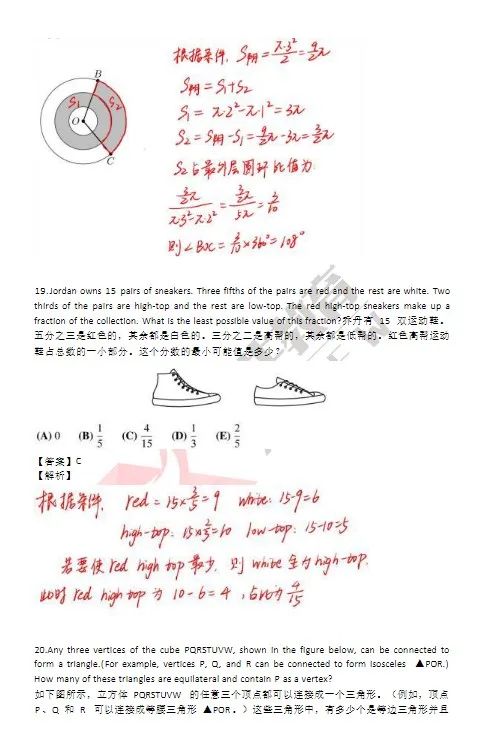 根据条件, S阴 = π·3²/2 = 9/2π
S阴 = S₁+S₂
S₁ = π·2²-π·1² = 3π
S₂ = S阴-S₁ = 9/2π-3π = 3/2π
S₂占最外层圆环比值为:
3/2π / π·3²-π·2² = 3/2π / 5π = 3/10
则∠BOC = 3/10×360° = 108°
B
S₁
S₂
O
C
19.Jordan owns 15 pairs of sneakers. Three fifths of the pairs are red and the rest are white. Two
thirds of the pairs are high-top and the rest are low-top. The red high-top sneakers make up a
fraction of the collection. What is the least possible value of this fraction?乔丹有 15 双运动鞋。
五分之三是红色的，其余都是白色的。三分之二是高帮的，其余都是低帮的。红色高帮运动
鞋占总数的一小部分。这个分数的最小可能值是多少？
(A) 0 (B) 1/5 (C) 4/15 (D) 1/3 (E) 2/5
【答案】C
【解析】
根据条件, red = 15×3/5 = 9 white: 15-9=6
high-top: 15×2/3=10 low-top: 15-10=5
若要使 red high top 最少, 则 white 全为 high-top.
此时 red high top 为 10-6=4, 占比为 4/15
20.Any three vertices of the cube PQRSTUVW, shown in the figure below, can be connected to
form a triangle.(For example, vertices P, Q, and R can be connected to form isosceles ▲PQR.)
How many of these triangles are equilateral and contain P as a vertex?
如下图所示，立方体 PQRSTUVW 的任意三个顶点都可以连接成一个三角形。（例如，顶点
P、Q 和 R 可以连接成等腰三角形 ▲PQR。）这些三角形中，有多少个是等边三角形并且